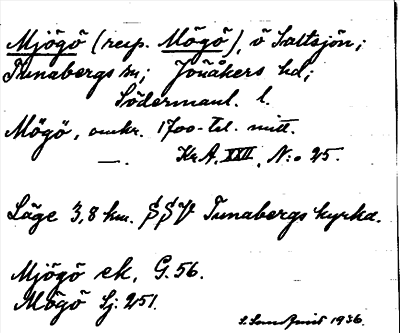 Mjögö (resp. Mögö), ö Saltsjön;
Tunabergs sn; Jönåkers hd;
Södermanl. l.
Mögö, omkr. 1700-tal. mitt.
—. Kr.A. XXII, N:o 25.
Läge 3,8 km. SSV Tunabergs kyrka.
Mjögö ek, G. 56.
Mögö Lj: 251.
S. 1936.